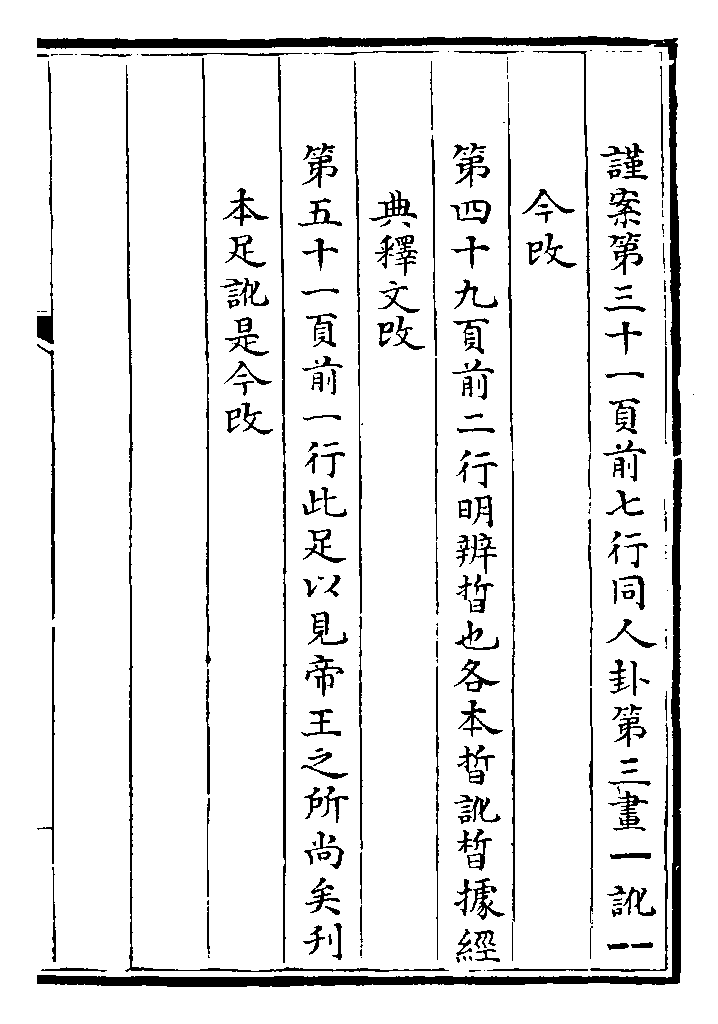 謹案第三十一頁前七行同人卦第三畫一訛⚋
今改
第四十九頁前二行明辨晢也各本晢訛晳據經
典釋文改
第五十一頁前一行此足以見帝王之所尚矣刋
本足訛是今改